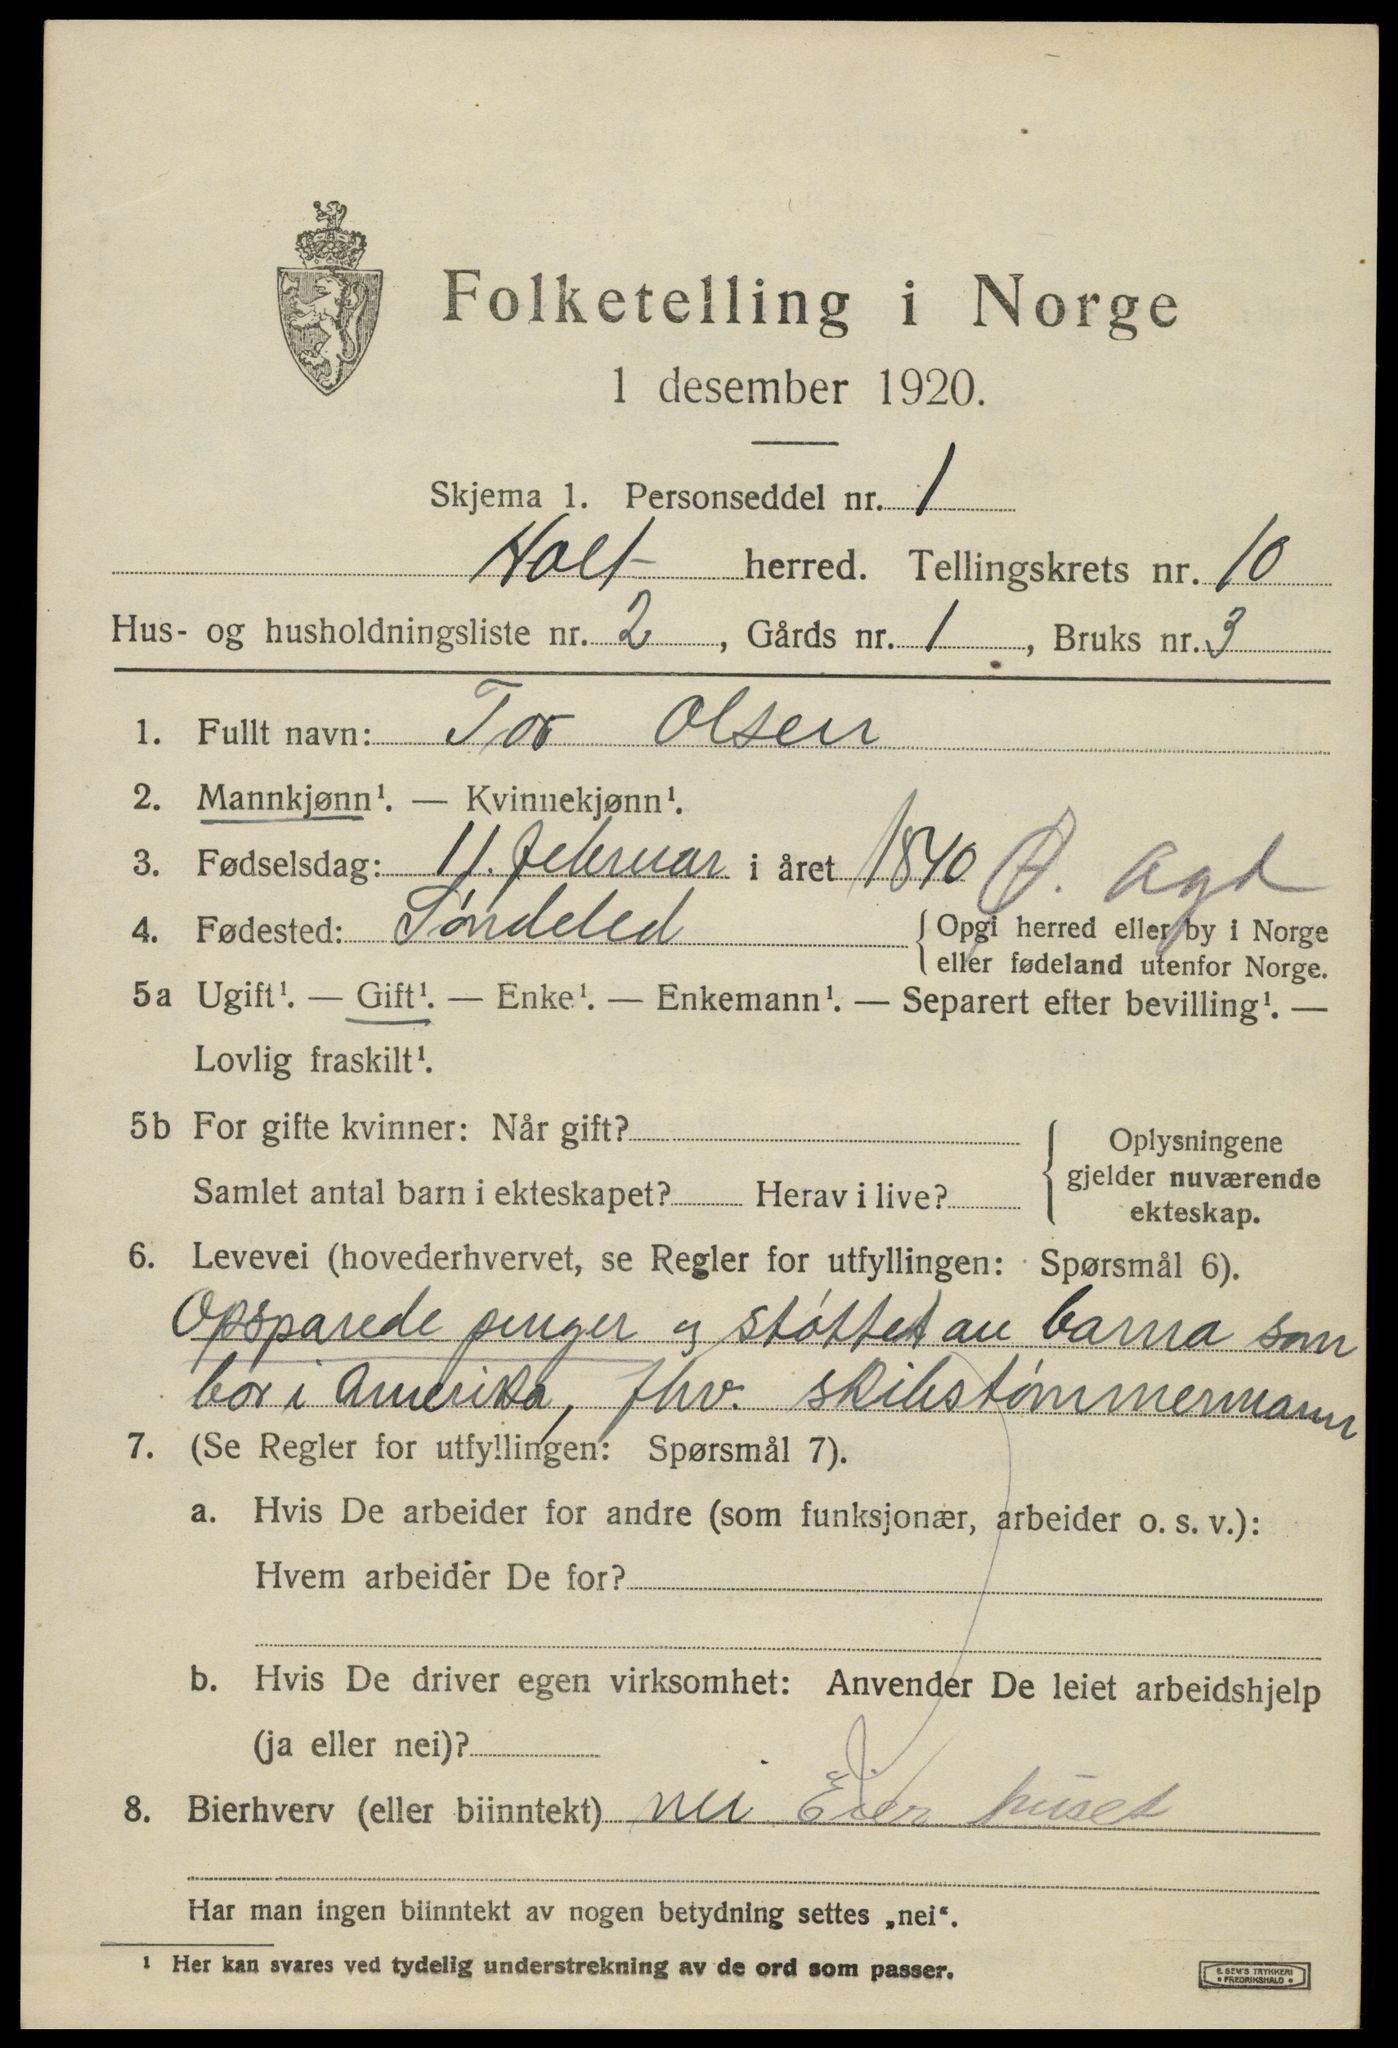 Folketelling i Norge
1 desember 1920.
Skjema 1. Personseddel nr. 1
Holt herred. Tellingskrets nr. 10
Hus- og husholdningsliste nr. 2, Gårds nr. 1, Bruks nr. 3
1. Fullt navn: Tor Olsen
2. Mannkjønn¹. — Kvinnekjønn¹.
3. Fødselsdag: 11. februar i året 1840 Ø. Agd
4. Fødested: Søndeled { Opgi herred eller by i Norge
eller fødeland utenfor Norge.
5a Ugift¹. — Gift¹. — Enke¹. — Enkemann¹. — Separert efter bevilling¹. —
Lovlig fraskilt¹.
5b For gifte kvinner: Når gift?
Samlet antal barn i ekteskapet? Herav i live?
{ Oplysningene
gjelder nuværende
ekteskap.
6. Levevei (hovederhvervet, se Regler for utfyllingen: Spørsmål 6).
Opsparede penger og støttet av barna som
bor i Amerika, fhv. skibstømmermann
7. (Se Regler for utfyllingen: Spørsmål 7).
a. Hvis De arbeider for andre (som funksjonær, arbeider o. s. v.):
Hvem arbeider De for?
b. Hvis De driver egen virksomhet: Anvender De leiet arbeidshjelp
(ja eller nei)?
8. Bierhverv (eller biinntekt) nei Eier huset
Har man ingen biinntekt av nogen betydning settes „nei“.
¹ Her kan svares ved tydelig understrekning av de ord som passer.
E. SEM'S TRYKKERI
• FREDRIKSHALD •